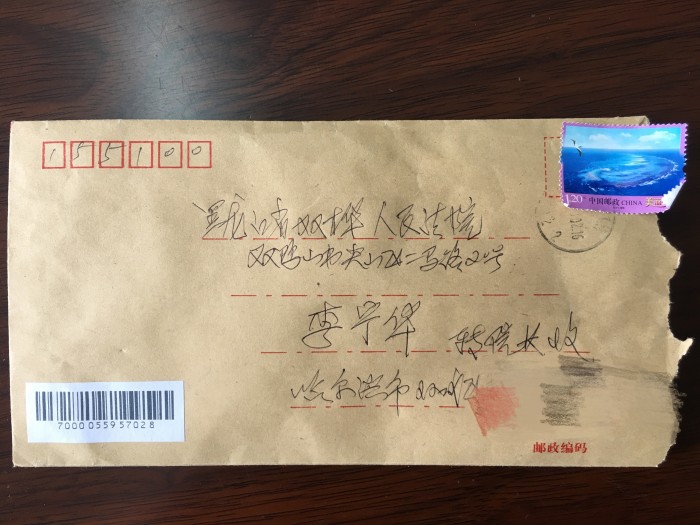 155100
1.20
中国邮政 CHINA
黑龙江省双桦人民法院
双鸭山市尖山区二马路2号
李宁华 转院长收
哈尔滨市双城区
7000055957028
邮政编码